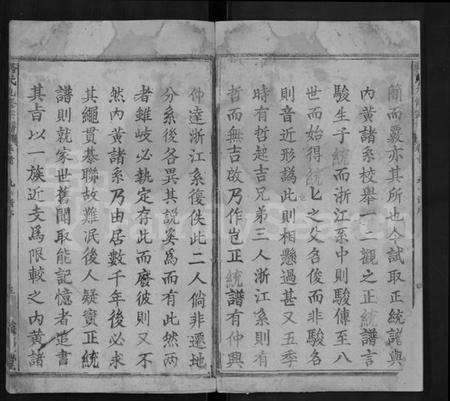 簡而覈亦其所也今試取正統譜與
內黃諸系校舉一二觀之正統譜言
駿生子統而浙江系中則駿傳至八
世而始得統匕之父名俊而非駿名
則音近形譌此則相懸過甚又五季
時有哲起吉兄弟三人浙江系則有
哲而無吉啟乃作岂正統譜有仲興
仲達浙江系復佚此二人倘非遷地
分系後各異其說奚爲而有此然兩
者雖岐必執定存此而廢彼則又不
然內黃諸系乃由居數千年後必求
其繩貫棊聯故難泯後人疑竇正統
譜則就家世舊聞取能記憶者造書
其旨以一族近支爲限較之內黃諸